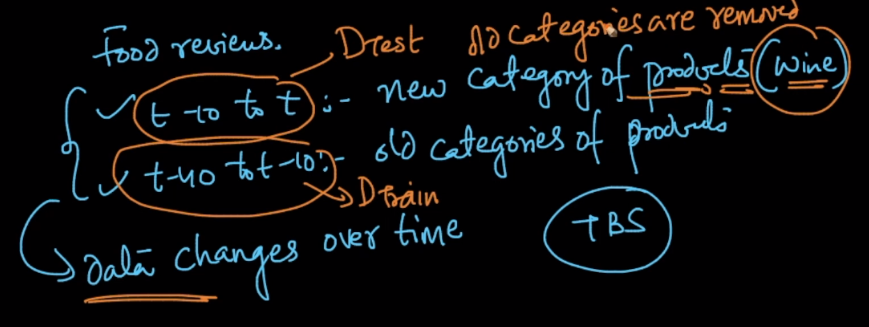 Food reviews. Dtest old categories are removed
t-10 to t :- new category of products (wine)
t-40 to t-10 :- old categories of products
Dtrain
data changes over time
TBS